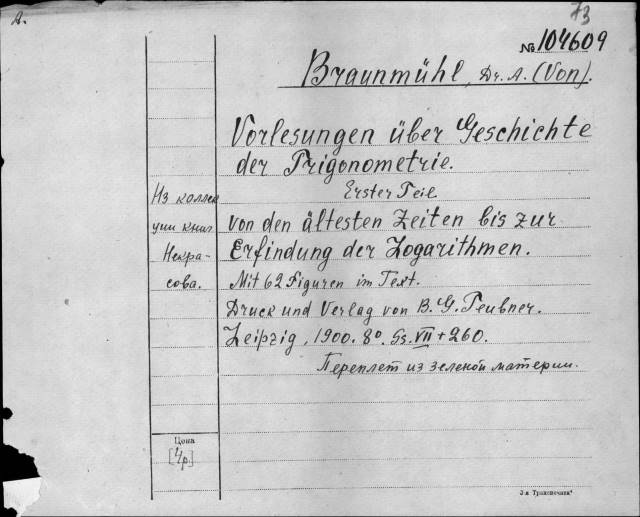 А.
73
№ 104609
Braunmühl, Dr. A. (Von).
Vorlesungen über Geschichte
der Trigonometrie.
Erster Teil
von den ältesten Zeiten bis zur
Erfindung der Logarithmen.
Mit 62 Figuren im Text.
Druck und Verlag von B. G. Teubner.
Leipzig, 1900. 8°. Ss. VII + 260.
Переплет из зеленой материи.
Из коллек
ции книг
Некра-
сова.
Цена
[4р.]
3-я Транспечать